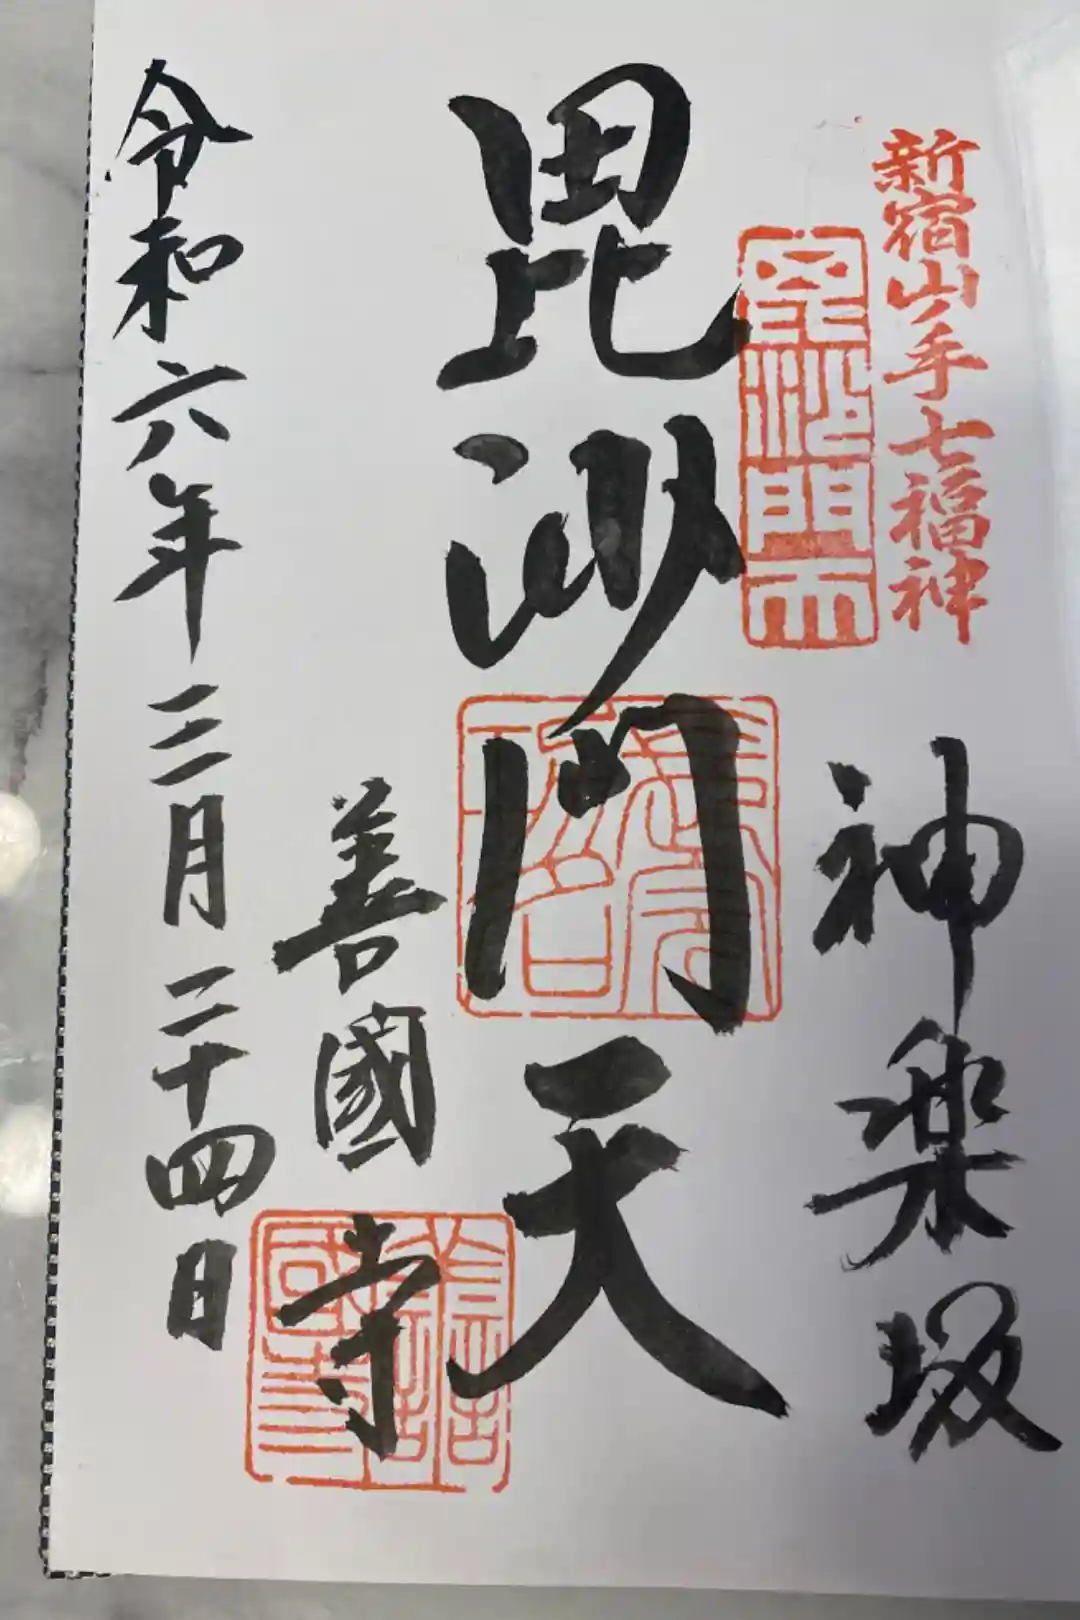 新宿山ノ手七福神
神楽坂
毘沙門天
毘沙門天
善國寺
令和六年三月二十四日